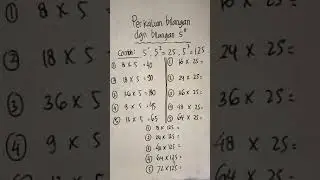 Perkalian bilangan
dgn bilangan 5ⁿ
Contoh: 5¹, 5² = 25, 5³ = 125
① 8 x 5 = 40
② 18 x 5 = 90
③ 36 x 5 = 180
④ 9 x 5 = 45
⑤ 13 x 5 = 65
① 16 x 25 =
② 24 x 25 =
③ 36 x 25 =
④ 48 x 25 =
⑤ 64 x 25 =
① 8 x 125 =
② 24 x 125 =
③ 48 x 125 =
④ 64 x 125 =
⑤ 72 x 125 =
② 18 x 5
③ 36 x 5
④ 9 x 5
24 x 25 =
36 x 25 =
48 x 25